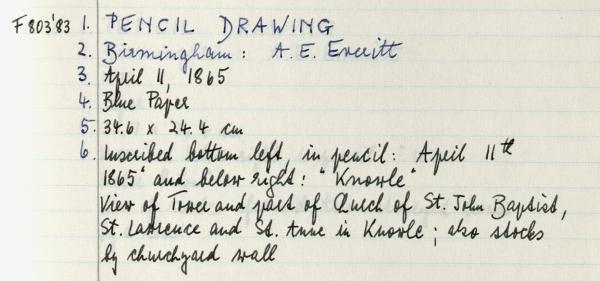 F803'83 1. PENCIL DRAWING
2. Birmingham: A. E. Everitt
3. April 11, 1865
4. Blue Paper
5. 34.6 x 24.4 cm
6. Inscribed bottom left, in pencil: April 11th
1865" and below right: "Knowle"
View of Tower and part of Church of St. John Baptist,
St. Lawrence and St. Anne in Knowle; also stocks
by churchyard wall